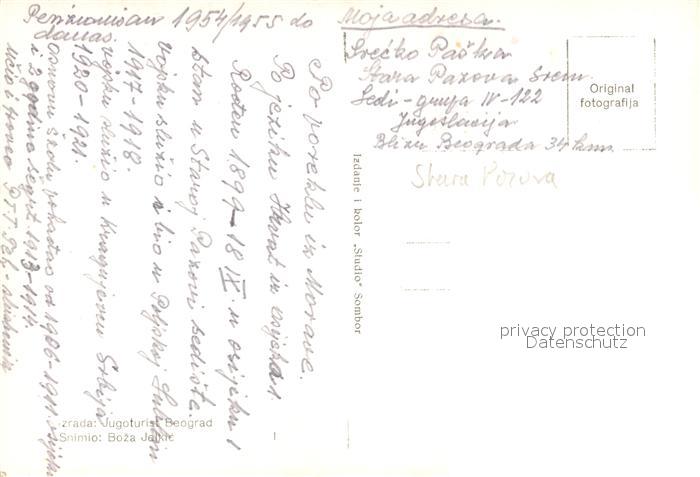 Penzionisan 1954/1955 do
danas.
Moja adresa.
Srećko Paška
Stara Pazova Srem.
Ledi-grupa IV-122
Jugoslavija
Blizu Beograda 34 km.
Original
fotografija
Stara Pozova
Po poreklu iz Morave.
Po jeziku Hrvat iz osijeka 1.
Rođen 1899-18 IX. u osijeku 1
stan u Staroj Pazovi sedište.
vojsku služio i bio u Poljskoj Lublin
1917-1918.
vojsku služio u Kragujevcu Srbija
1920-1921.
osnovnu školu pohađao od 1906-1911.
i 2 godine šegrt 1913-1914.
učio i
Izdanje i kolor „Studio" Sombor
Izrada: Jugoturist Beograd
Snimio: Boža Jelkić
privacy protection
Datenschutz